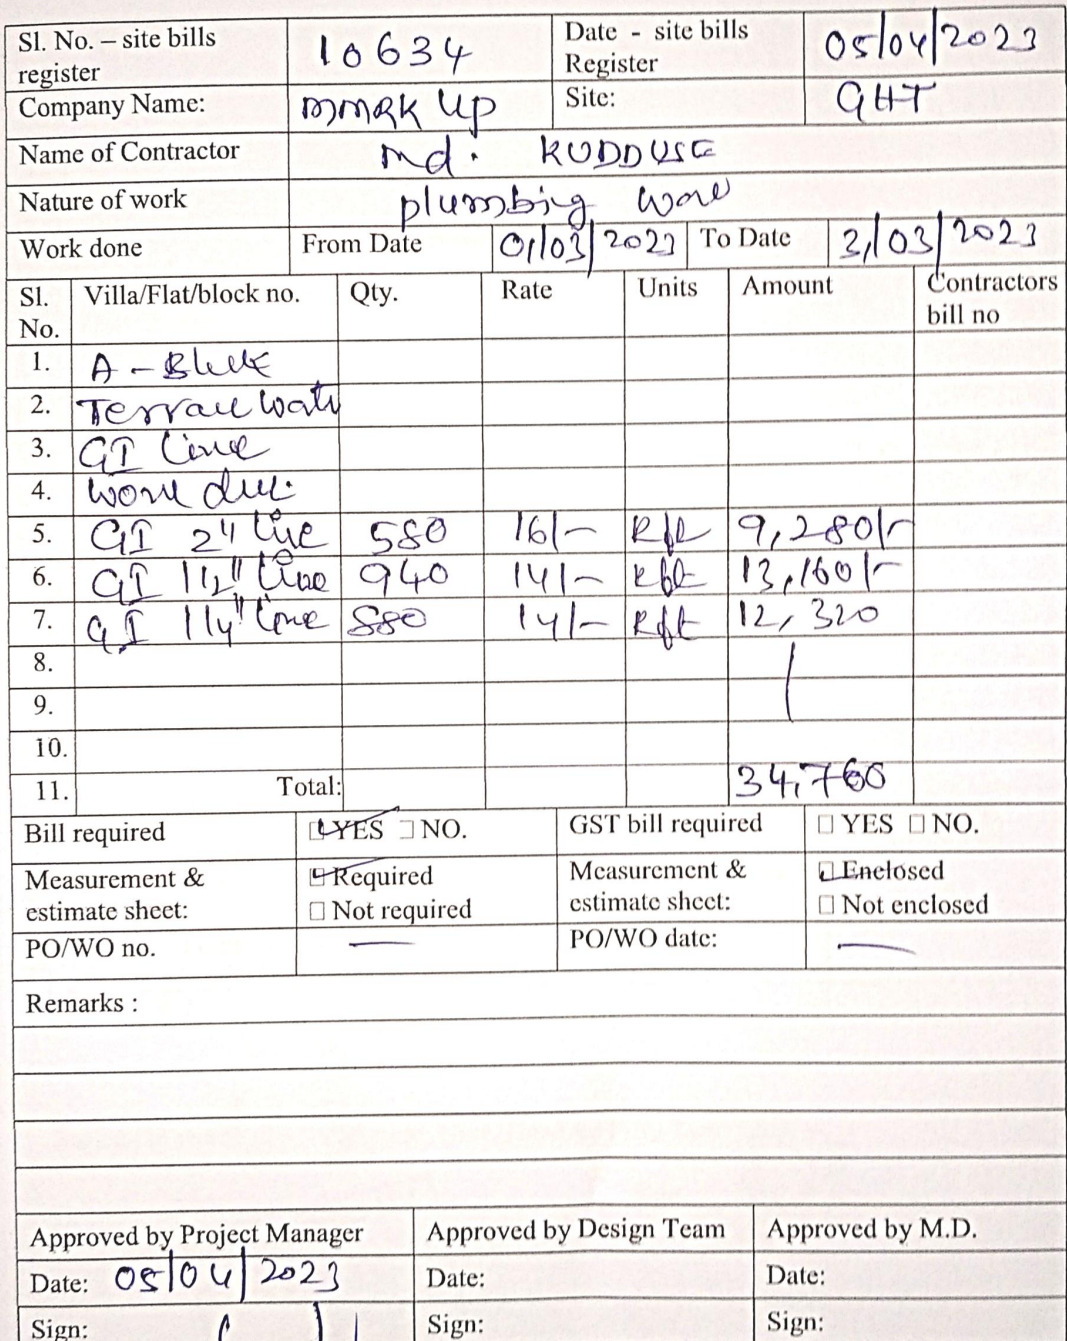 Sl. No. – site bills register 10634 Date - site bills Register 05/04/2023
Company Name: mmRK Up Site: GHT
Name of Contractor Md. KUDDUSE
Nature of work plumbing work
Work done From Date 01/03/2023 To Date 31/03/2023
Sl. No. Villa/Flat/block no. Qty. Rate Units Amount Contractors bill no
1. A - Block
2. Terrace Wate
3. GI Line
4. work
5. GI 2" Line 580 16/- Rft 9,280/-
6. GI 1 1/2" Line 940 14/- Rft 13,160/-
7. GI 1 1/4" Line 880 14/- Rft 12,320
8.
9.
10.
11. Total: 34,760
Bill required ☑ YES ☐ NO. GST bill required ☐ YES ☐ NO.
Measurement & estimate sheet: ☑ Required ☐ Not required Measurement & estimate sheet: ☑ Enclosed ☐ Not enclosed
PO/WO no. — PO/WO date: —
Remarks :
Approved by Project Manager Approved by Design Team Approved by M.D.
Date: 05/04/2023 Date: Date:
Sign: Sign: Sign: